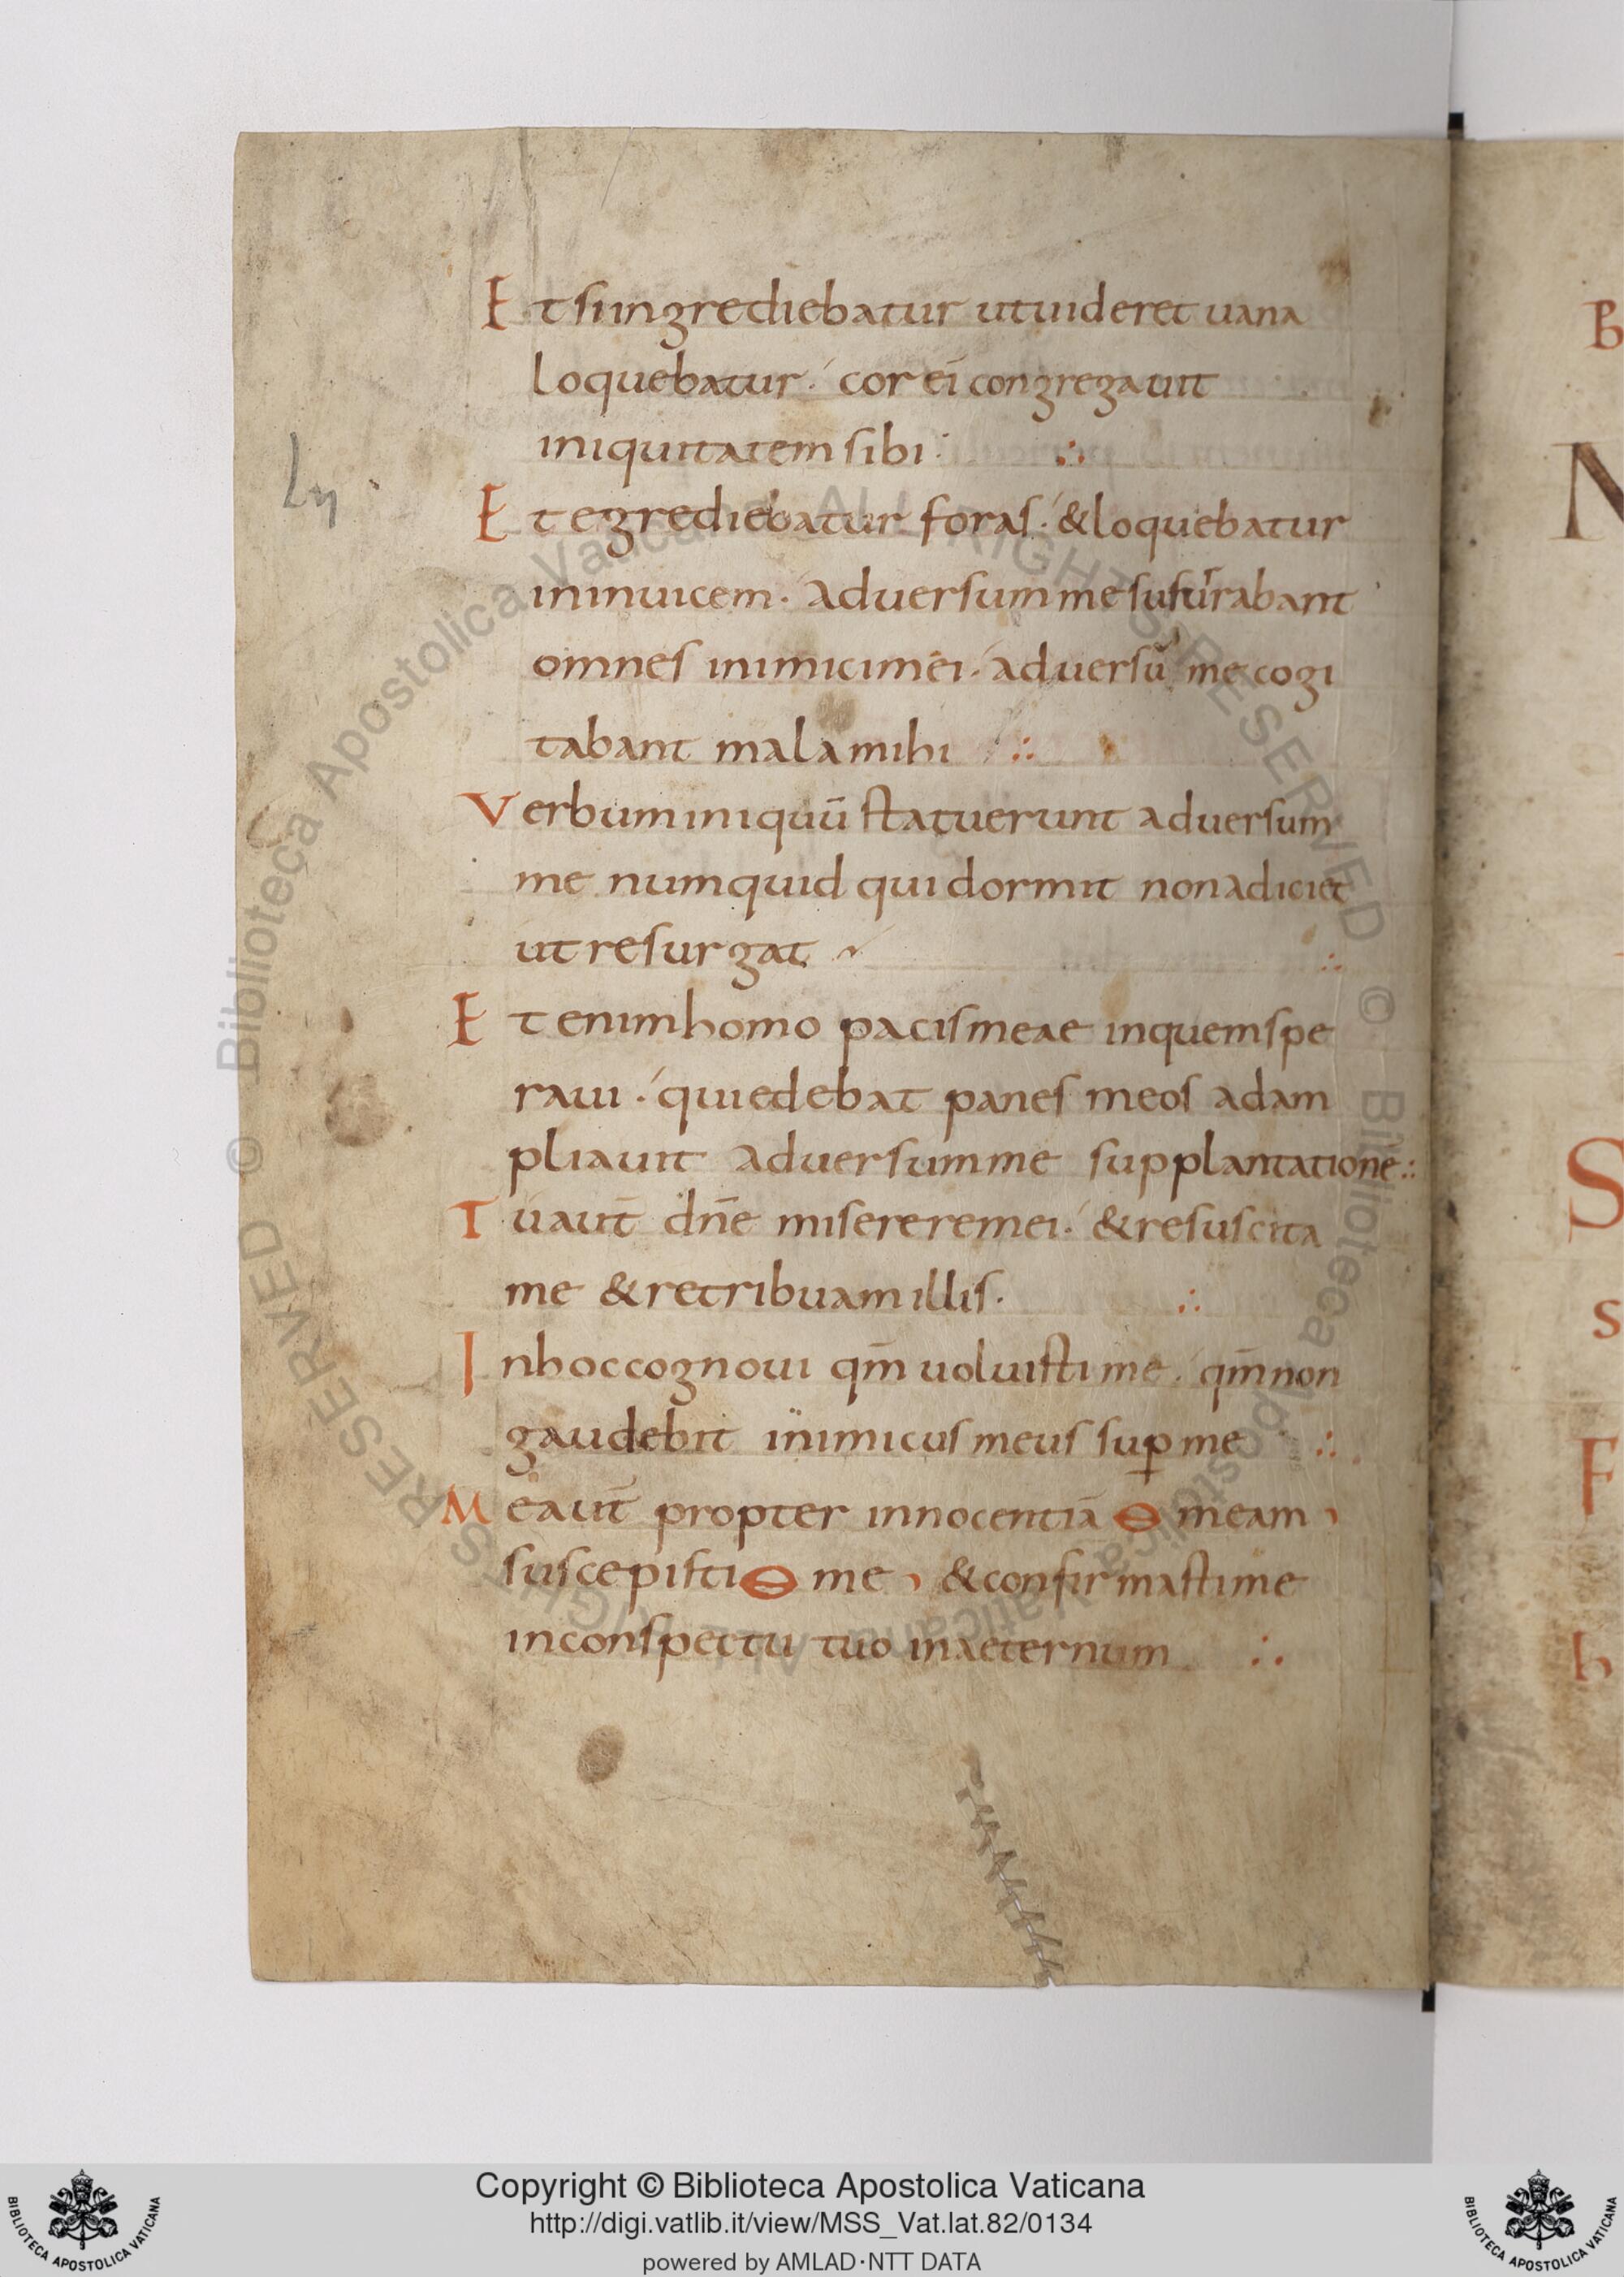 Et si ingrediebatur ut uideret uana
loquebatur · cor ei congregauit
iniquitatem sibi :
Et egrediebatur foras · & loquebatur
in inuicem · Aduersum me susurrabant
omnes inimici mei · aduersū me cogi
tabant mala mihi ∴
Verbum iniquū statuerunt aduersum
me numquid qui dormit non adiciet
ut resurgat ∴
Etenim homo pacis meae in quem spe
raui · qui edebat panes meos adam
pliauit aduersum me supplantatione ∴
Tu aut̄ dn̄e miserere mei · & resuscita
me & retribuam illis · ∴
In hoc cognoui qm̄ uoluisti me · qm̄ non
gaudebit inimicus meus sup me ∴
Me aut̄ propter innocentiā ⊖ meam
suscepisti ⊖ me , & confirmasti me
in conspectu tuo in aeternum ∴
B
N
S
s
F
h
© Biblioteca Apostolica Vaticana ALL RIGHTS RESERVED
© Biblioteca Apostolica Vaticana ALL RIGHTS RESERVED
Copyright © Biblioteca Apostolica Vaticana
http://digi.vatlib.it/view/MSS_Vat.lat.82/0134
powered by AMLAD·NTT DATA
BIBLIOTECA APOSTOLICA VATICANA
BIBLIOTECA APOSTOLICA VATICANA